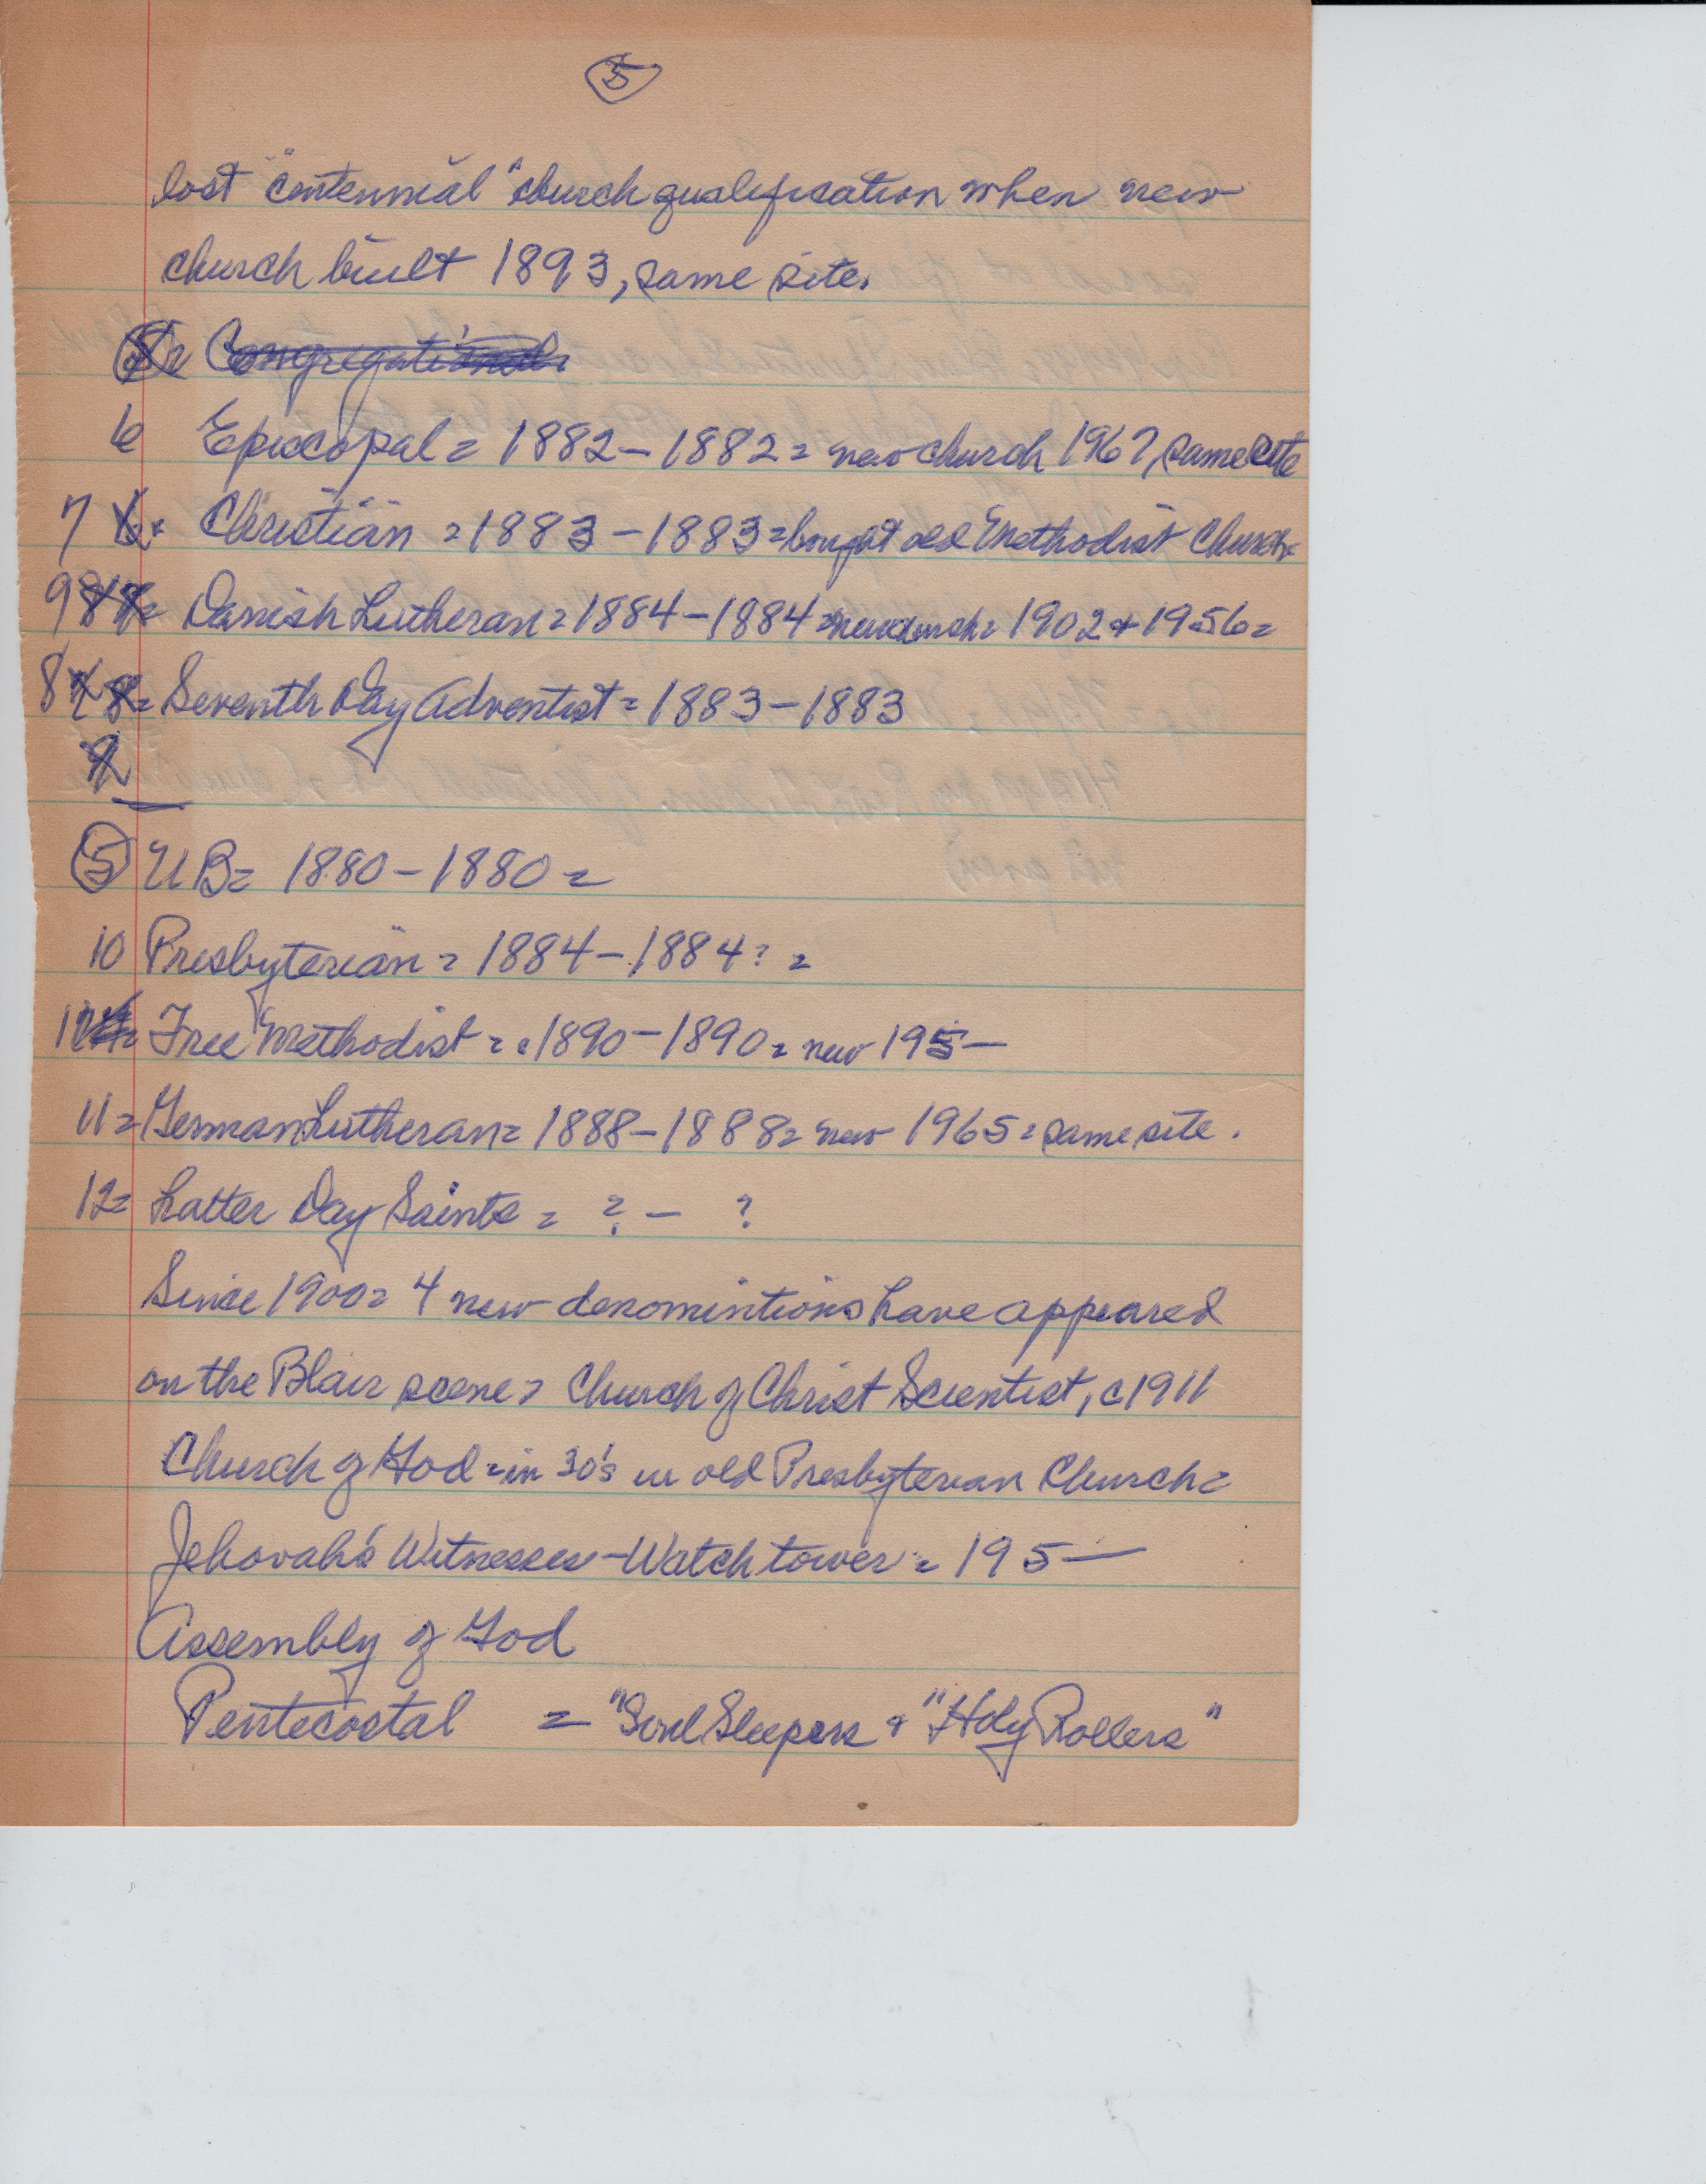 5
lost "centennial" church qualification when new
church built 1893, same site.
Congregational.
6 Episcopal = 1882 - 1882 = new church 196?, same site
7 6. Christian = 1883 - 1883 = bought old Methodist Church=
9 8 = Danish Lutheran = 1884 - 1884 = new church = 1902 + 1956 =
8 7 8 = Seventh Day Adventist = 1883 - 1883
9
5 UB = 1880 - 1880 =
10 Presbyterian = 1884 - 1884? =
12 = Free Methodist = 1890 - 1890 = new 195—
11 = German Lutheran = 1888 - 1888 = new 1965 = same site.
12 = Latter Day Saints = ? - ?
Since 1900 = 4 new denomintions have appeared
on the Blair scene = Church of Christ Scientist, c1911
Church of God = in 30's in old Presbyterian Church =
Jehovah's Witnesses - Watchtower = 195—
Assembly of God
Pentecostal = "Soul Sleepers + "Holy Rollers"